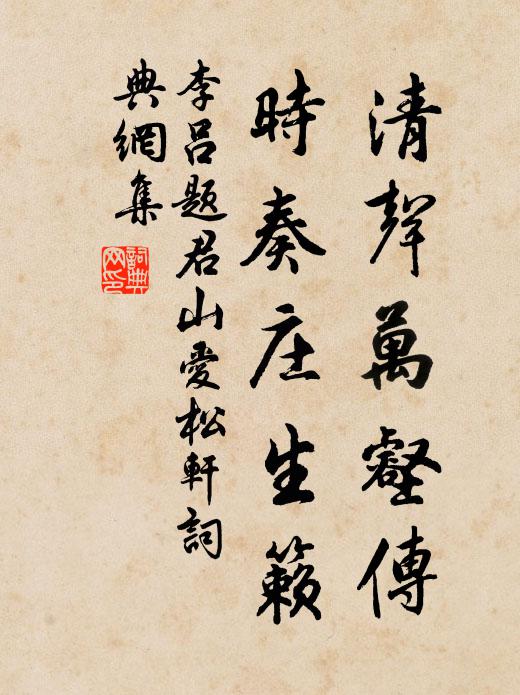 清聲萬壑傳
時奏庄生籟
李吕題君山愛松軒詞
典網集
詞典网印